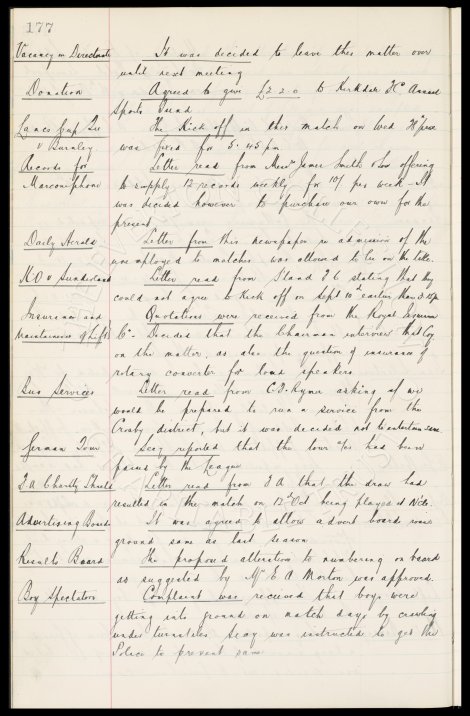 177
Vacancy on Directorate It was decided to leave this matter over
until next meeting
Donation Agreed to give £2 2 0 to Kirkdale Annual
Sports Fund.
Lancs Cup Tie The Kick off in this match on Wed
v Burnley was fixed for 5.45 pm
Records for Letter read from Messrs James Smith & Son offering
Marconiphone to supply 12 records weekly for 10/- per week. It
was decided however to purchase our own for the
present
Daily Herald Letter from this newspaper re admission of the
unemployed to matches was allowed to lie on the table.
v Sunderland Letter read from S'land F C stating that they
could not agree to Kick off on Sept 10th earlier than
Insurance and Quotations were received from the Royal Insurance
Maintenance of Lifts Co. Decided that the Chairman interview that Coy
on the matter, as also the question of insurance of
rotary converter for loud speakers.
Bus Services Letter read from C.F. Rymer asking if we
would be prepared to run a service from the
Crosby district, but it was decided not to entertain same
German Tour Secy reported that the tour a/cs had been
passed by the League
F A Charity Shield Letter read from F A that the draw had
resulted in the match on 12th Oct being played at N'cle.
Advertising Boards It was agreed to allow advert boards round
ground same as last season
Results Board The proposed alteration to numbering on board
as suggested by Mr E A Morton was approved.
Boy Spectators Complaint was received that boys were
getting into ground on match days by crawling
under turnstiles. Secy was instructed to get the
Police to prevent same